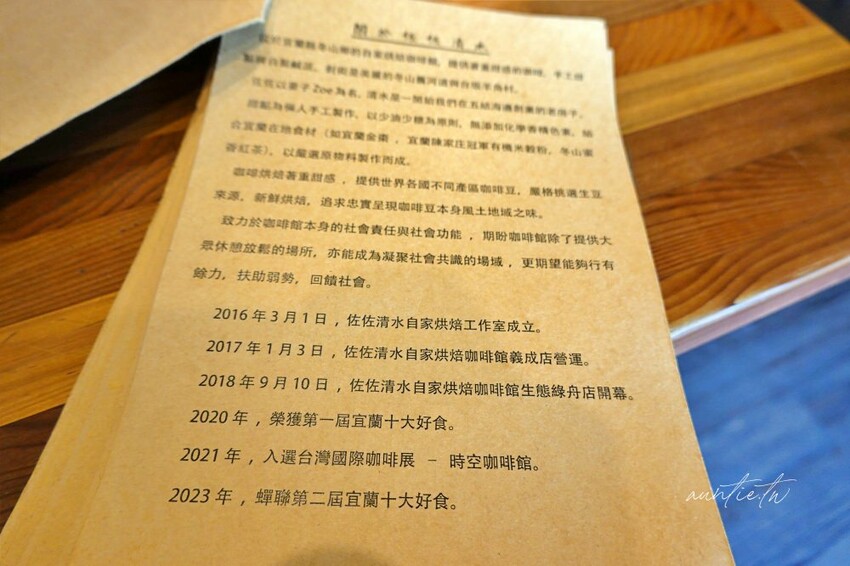 關於佐佐清水
位於宜蘭縣冬山鄉的自家烘焙咖啡館，提供著重甜感的咖啡，手工甜
點與自製鹹派，對街是美麗的冬山舊河道與自
佐佐以妻子Zoe為名，清水是一開始我們在五結海邊創業的老房子。
甜點為個人手工製作，以少油少糖為原則，無添加化學香精色素，結
合宜蘭在地食材（如宜蘭金棗，宜蘭陳家庄冠軍有機米穀粉，冬山蜜
香紅茶），以嚴選原物料製作而成。
咖啡烘焙著重甜感，提供世界各國不同產區咖啡豆，嚴格挑選生豆
來源，新鮮烘焙，追求忠實呈現咖啡豆本身風土地域之味。
致力於咖啡館本身的社會責任與社會功能，期盼咖啡館除了提供大
眾休憩放鬆的場所，亦能成為凝聚社會共識的場域，更期望能夠行有
餘力，扶助弱勢，回饋社會。
2016年3月1日，佐佐清水自家烘焙工作室成立。
2017年1月3日，佐佐清水自家烘焙咖啡館義成店營運。
2018年9月10日，佐佐清水自家烘焙咖啡館生態綠舟店開幕。
2020年，榮獲第一屆宜蘭十大好食。
2021年，入選台灣國際咖啡展 – 時空咖啡館。
2023年，蟬聯第二屆宜蘭十大好食。
auntie.tw